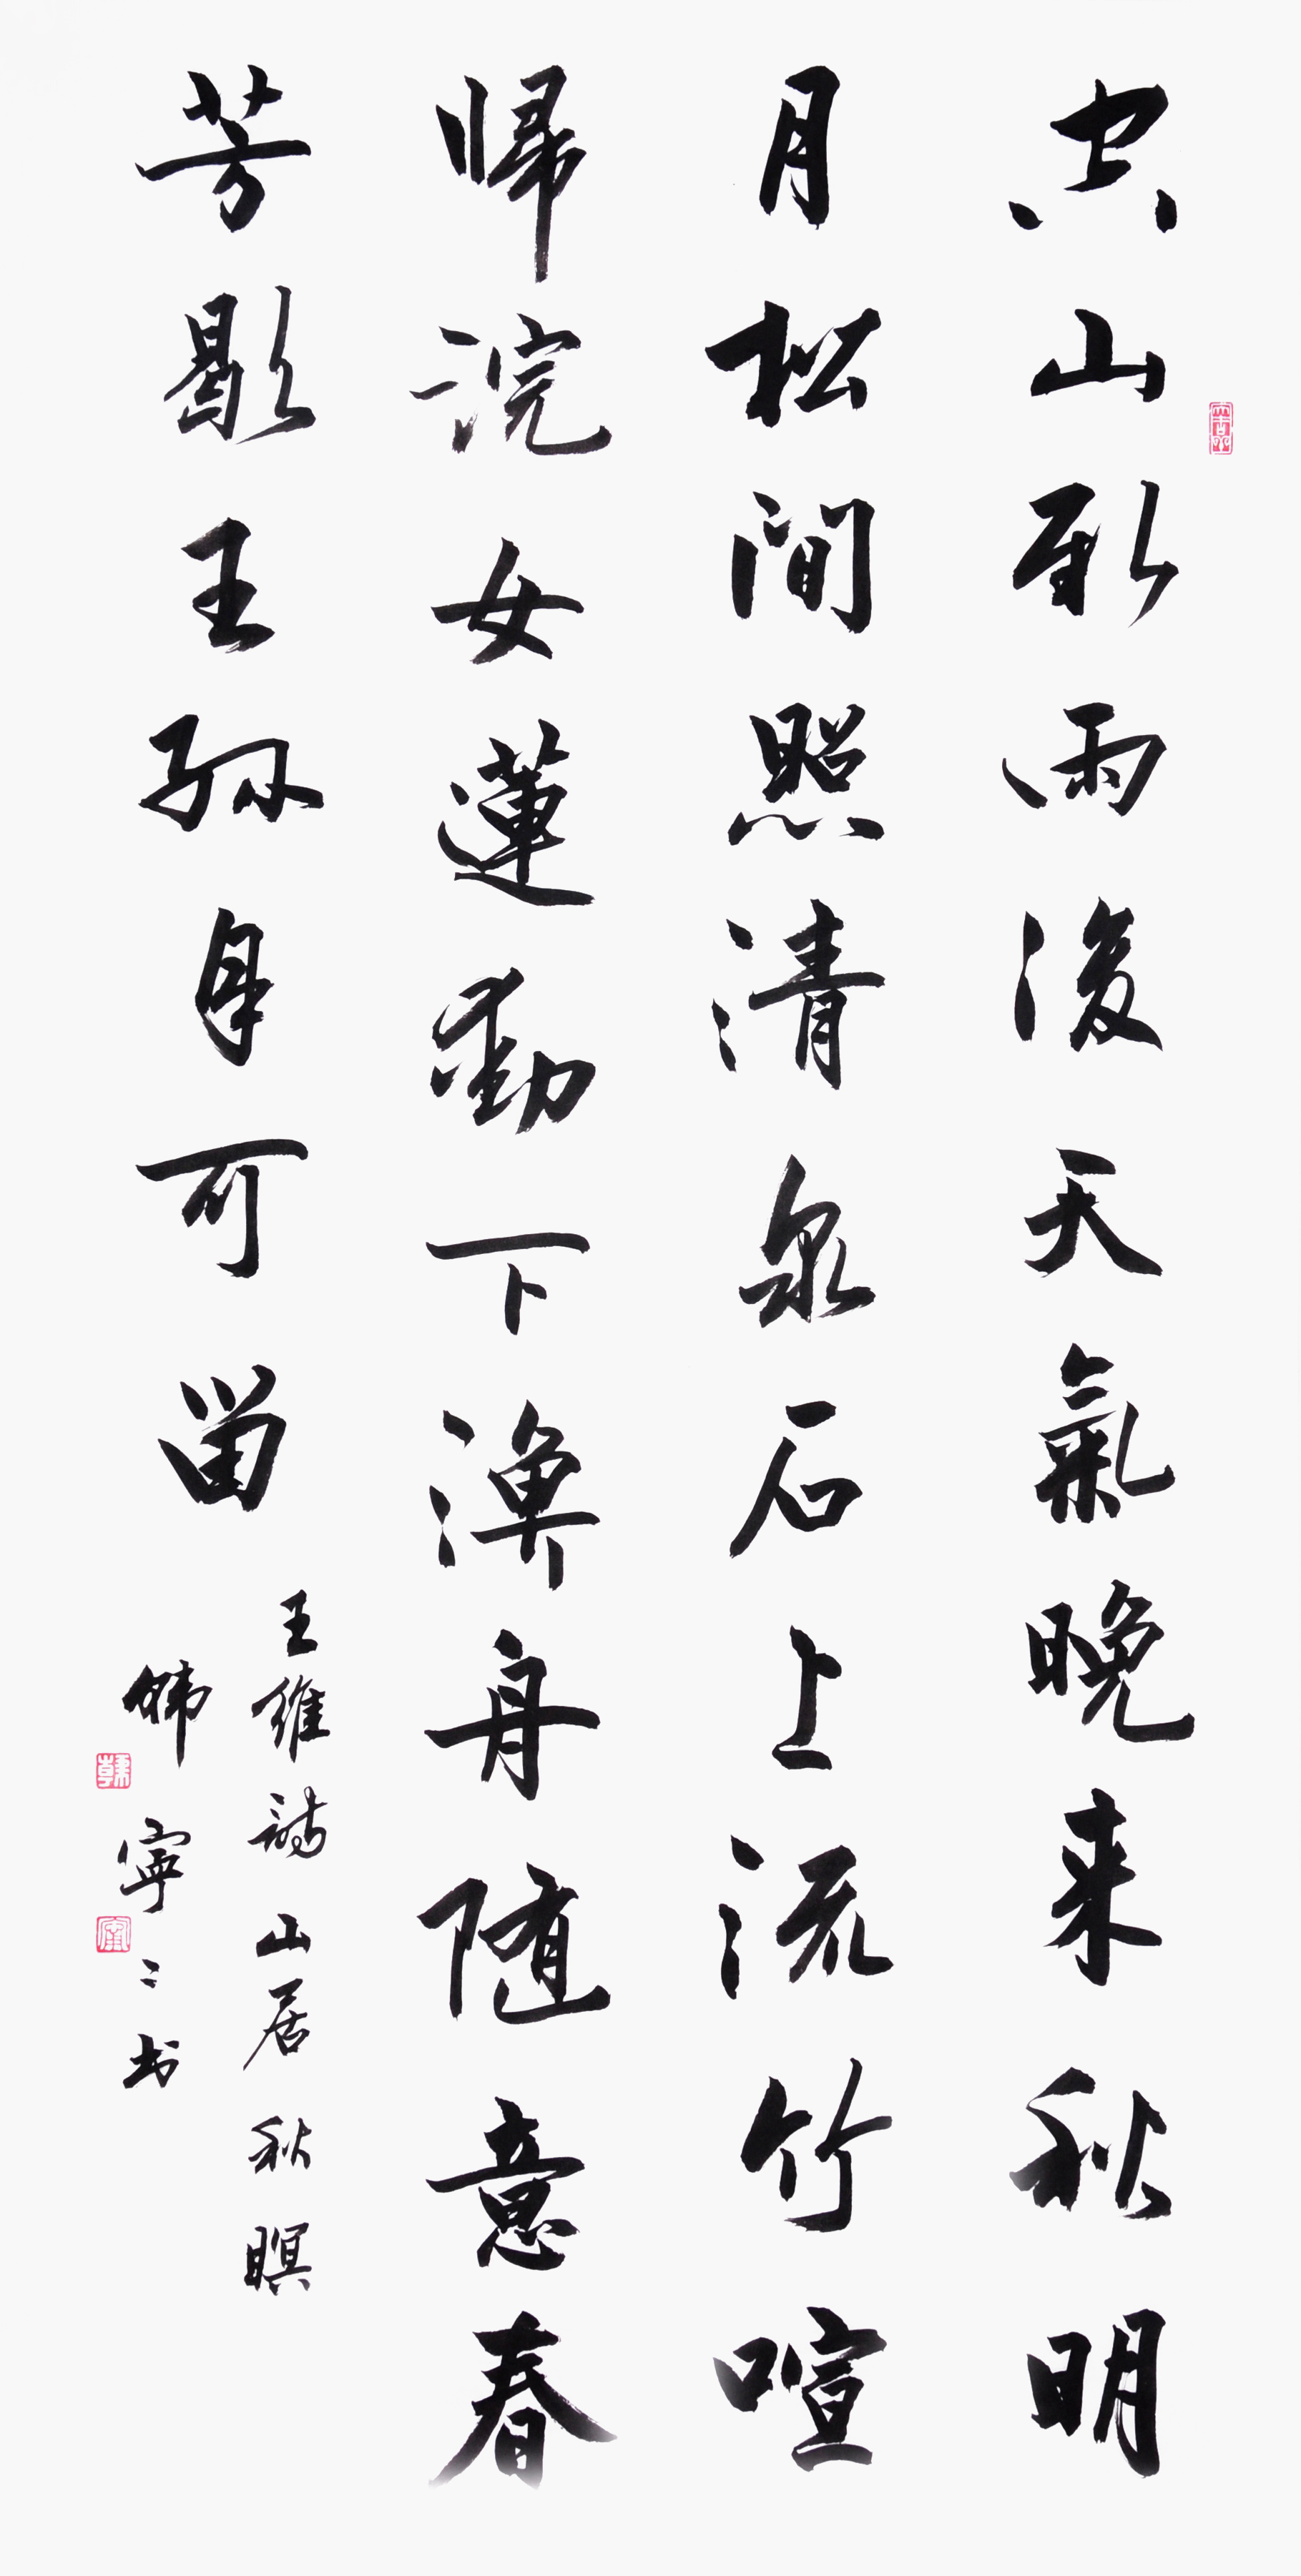 空山新雨後天氣晚来秋明
月松間照清泉石上流竹喧
帰浣女蓮動下漁舟随意春
芳歇王孫自可留
王維詩山居秋暝
韩寧〻书